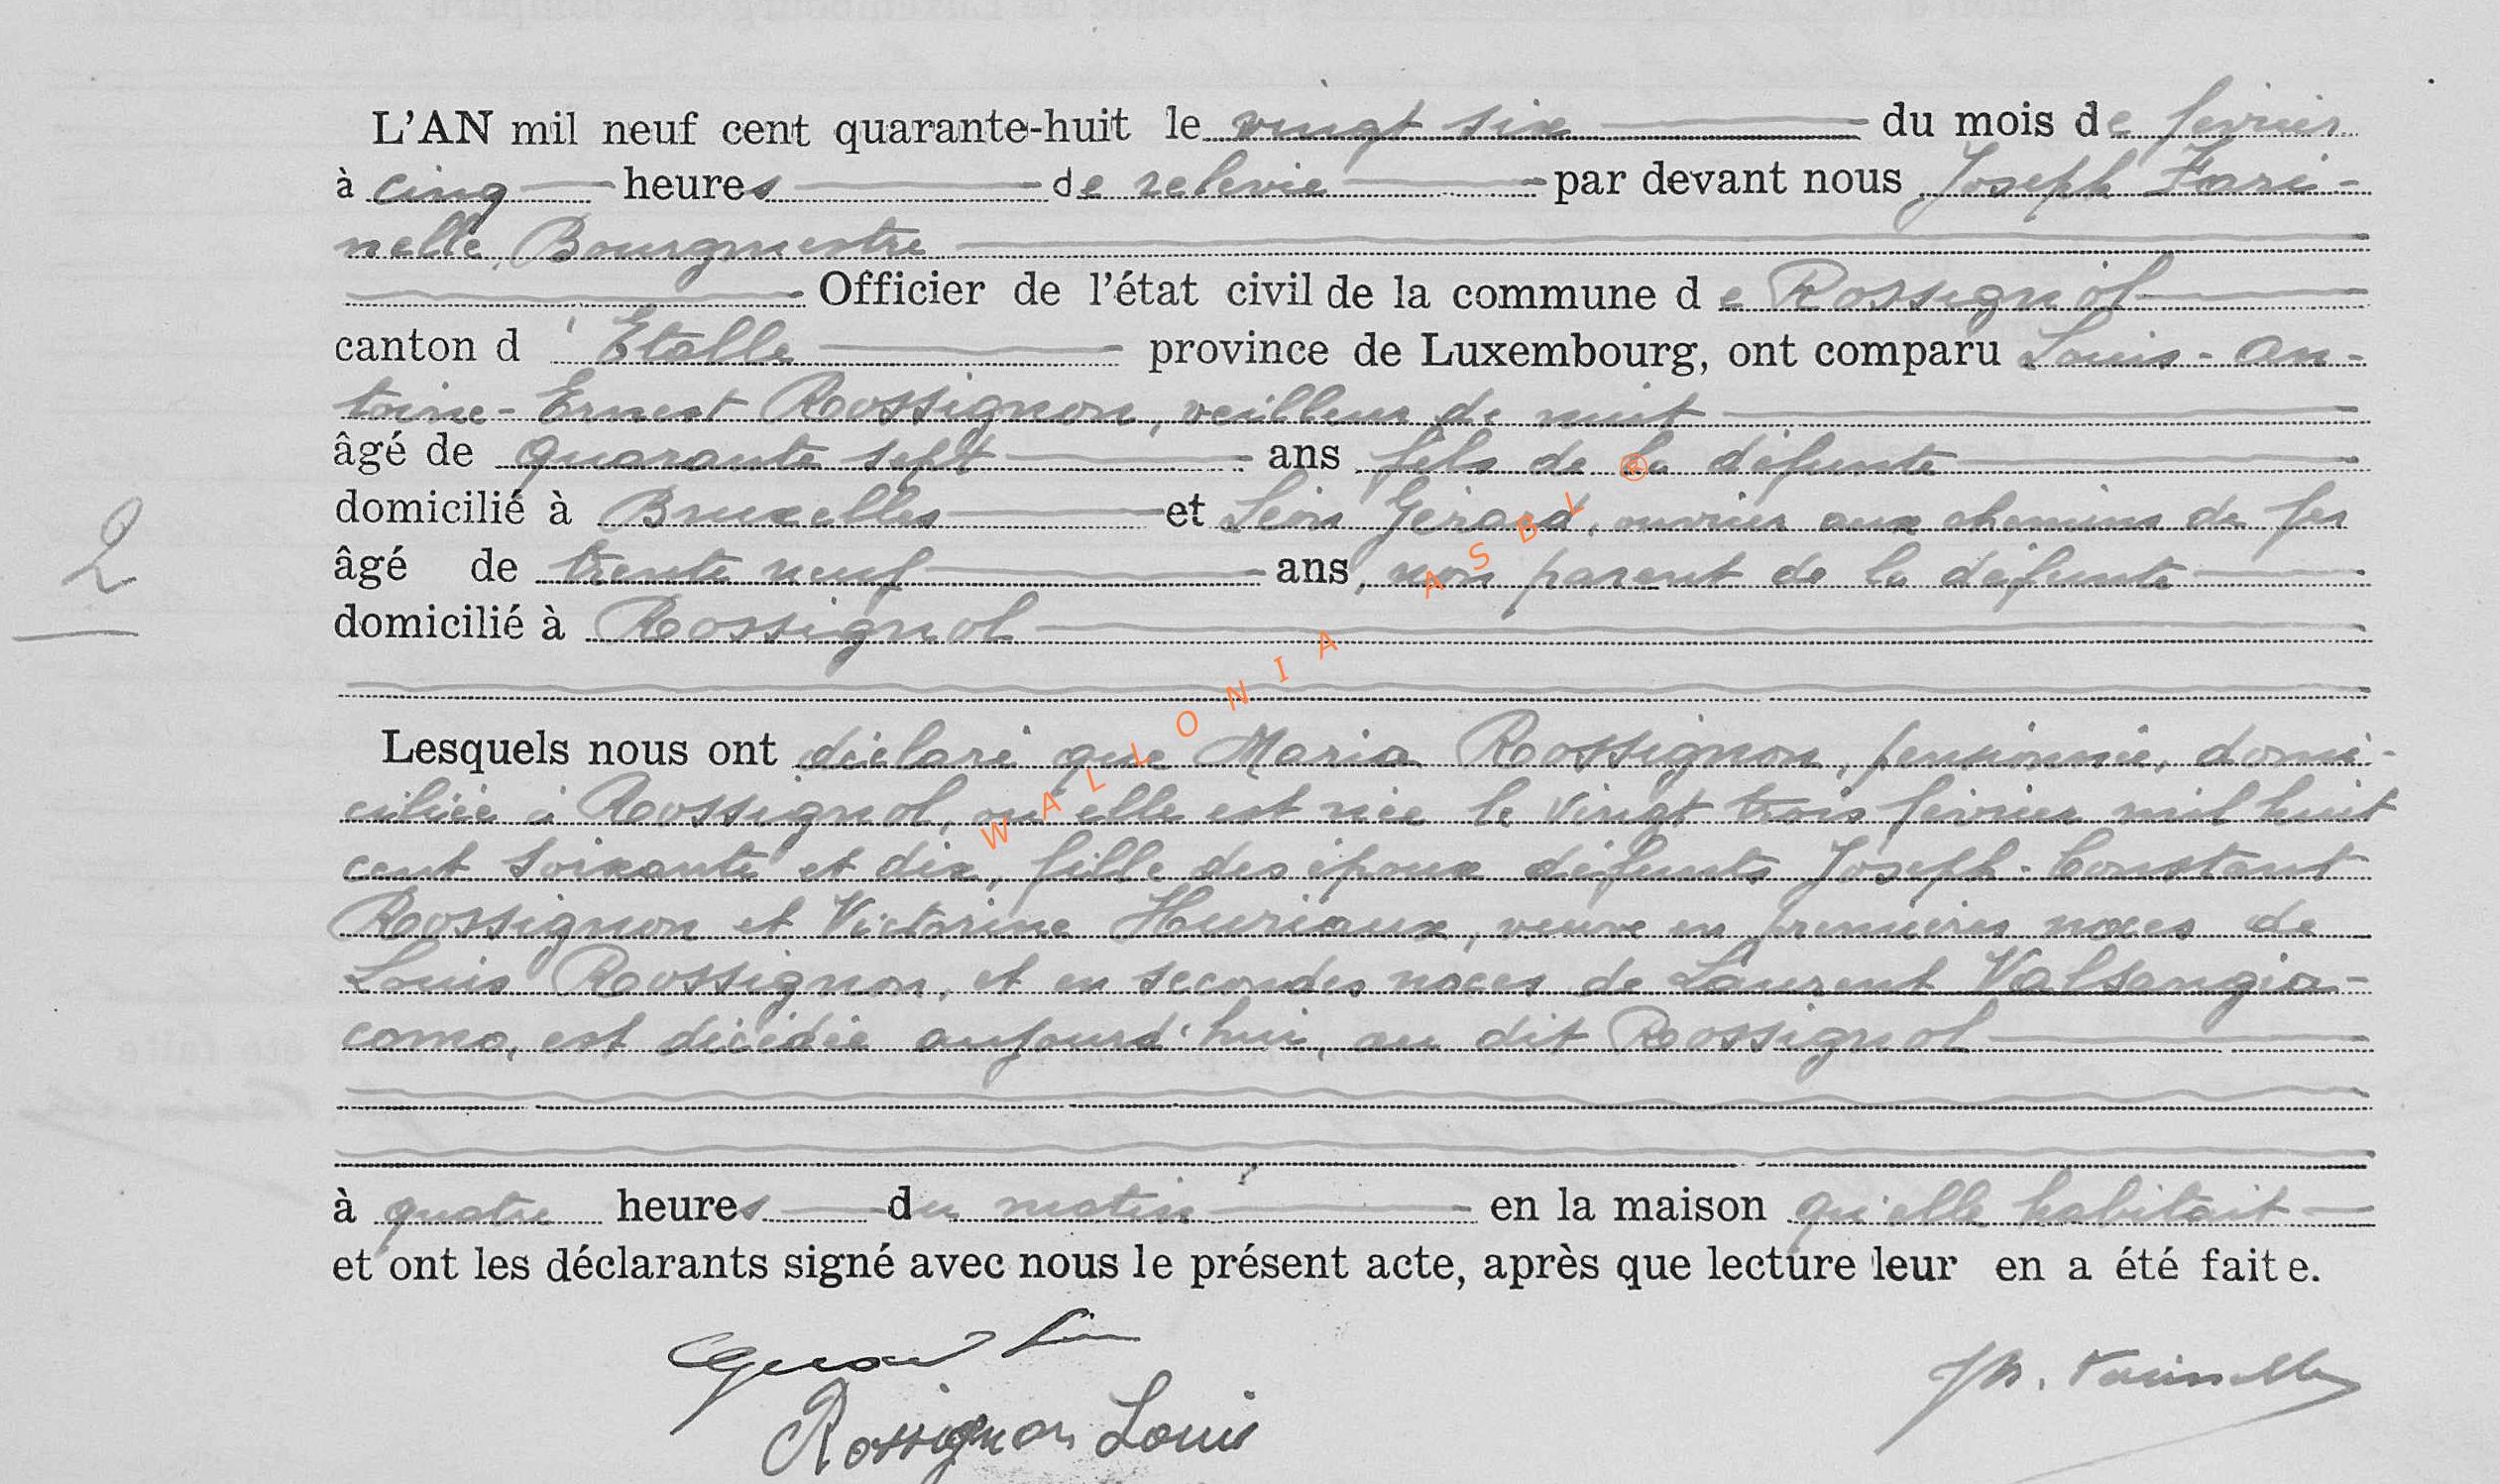 L'AN mil neuf cent quarante-huit le vingt six du mois de février
à cinq heures de relevée par devant nous Joseph Fari-
nelle, Bourgmestre
Officier de l'état civil de la commune de Rossignol
canton d'Etalle province de Luxembourg, ont comparu Louis-An-
toine-Ernest Rossignon, veilleur de nuit
âgé de quarante sept ans fils de la défunte
domicilié à Bruxelles et Léon Gérard, ouvrier aux chemins de fer
âgé de trente neuf ans, non parent de la défunte
2
domicilié à Rossignol
Lesquels nous ont déclaré que Maria Rossignon, pensionnée, domi-
ciliée à Rossignol, où elle est née le vingt trois février mil huit
cent soixante et dix, fille des époux défunts Joseph-Constant
Rossignon et Victorine Huriaux, veuve en premières noces de
Louis Rossignon, et en secondes noces de Laurent Valsangia-
como, est décédée aujourd'hui, au dit Rossignol
à quatre heures du matin en la maison qu'elle habitait
et ont les déclarants signé avec nous le présent acte, après que lecture leur en a été faite.
Gérard Léon
Jh. Farinelle
Rossignon Louis
WALLONIA ASBL ®